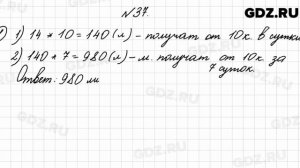 GDZ.RU
№37.
1) 14 * 10 = 140 (л) - получат от 10к. в сутки
2) 140 * 7 = 980 (л) - м. получат от 10к. за
7 суток.
Ответ: 980 ли
GDZ.RU